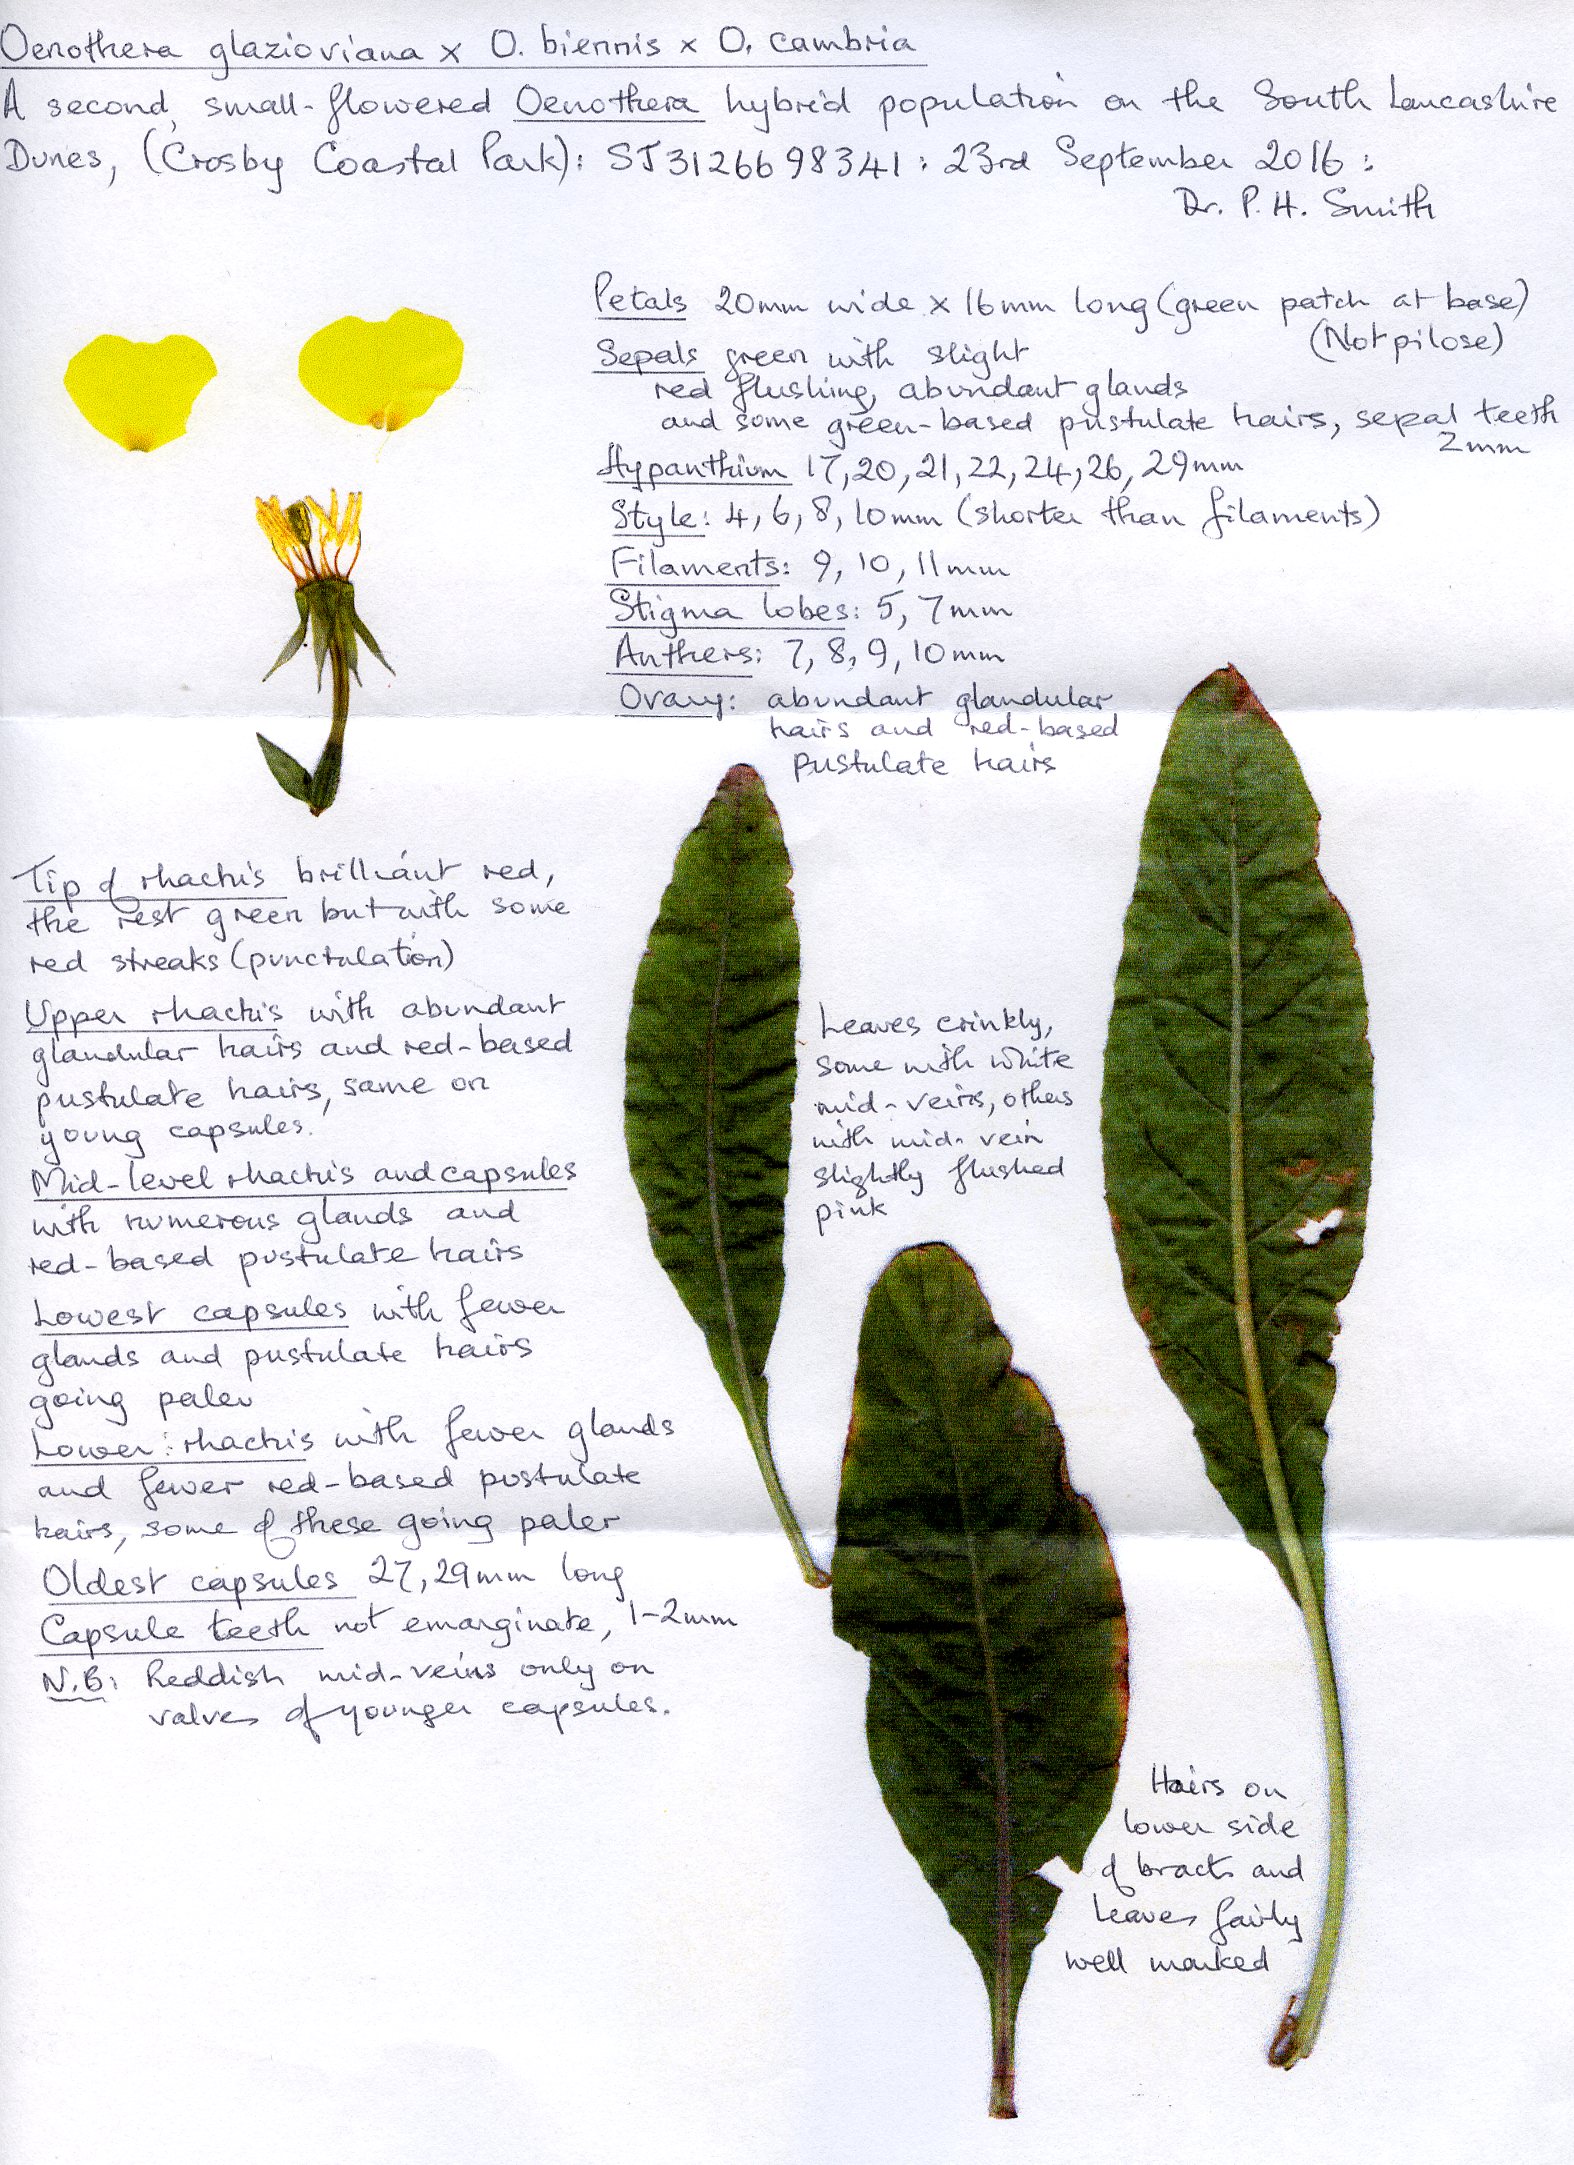 Oenothera glazioviana x O. biennis x O. cambria
A second, small-flowered Oenothera hybrid population on the South Lancashire
Dunes, (Crosby Coastal Park): SJ31266 98341: 23rd September 2016:
Dr. P. H. Smith
Petals 20mm wide x 16mm long (green patch at base)
(Not pilose)
Sepals green with slight
red flushing, abundant glands
and some green-based pustulate hairs, sepal teeth
2mm
Hypanthium 17, 20, 21, 22, 24, 26, 29mm
Style: 4, 6, 8, 10mm (shorter than filaments)
Filaments: 9, 10, 11mm
Stigma lobes: 5, 7mm
Anthers: 7, 8, 9, 10mm
Ovary: abundant glandular
hairs and red-based
pustulate hairs
Tip of rhachis brilliant red,
the rest green but with some
red streaks (punctulation)
Upper rhachis with abundant
glandular hairs and red-based
pustulate hairs, same on
young capsules.
Mid-level rhachis and capsules
with numerous glands and
red-based pustulate hairs
Lowest capsules with fewer
glands and pustulate hairs
going paler
Lower: rhachis with fewer glands
and fewer red-based pustulate
hairs, some of these going paler
Oldest capsules 27, 29mm long
Capsule teeth not emarginate, 1-2mm
N.B: Reddish mid-veins only on
valves of younger capsules.
Leaves crinkly,
some with white
mid-veins, others
with mid-vein
slightly flushed
pink
Hairs on
lower side
of bracts and
leaves fairly
well marked